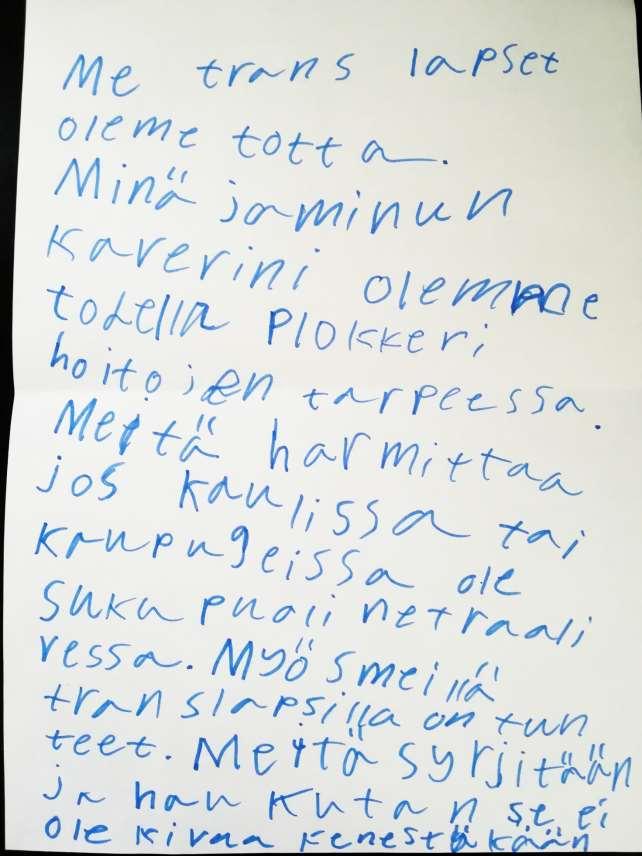 Me trans lapset
oleme totta.
Minä jaminun
kaverini olemme
todella plokkeri
hoitojen tarpeessa.
Meitä harmittaa
jos kaulissa tai
kaupugeissa ole
suku puoli netraali
vessa. Myösmeillä
tran slapsilla on tun
teet. Meitä syrjitään
ja hau kuta n se ei
ole kivaa kenestäkään